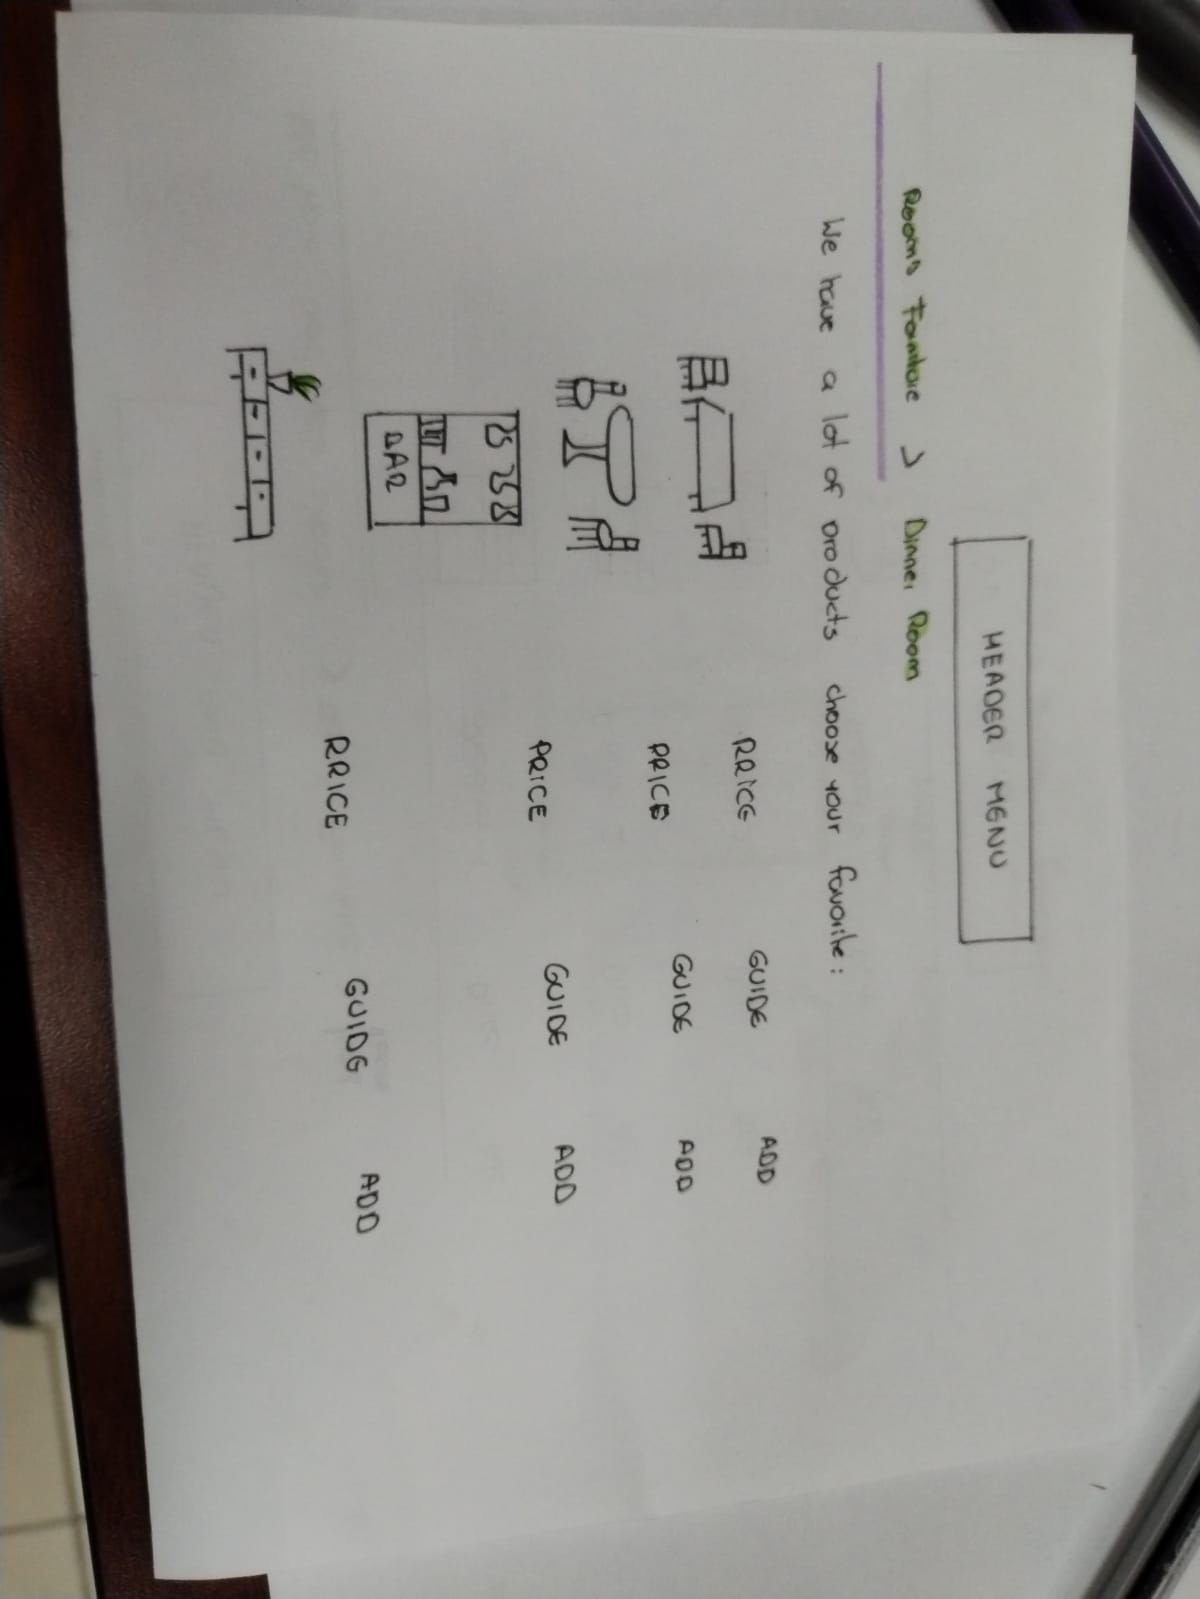 HEADER MENU
Rooms Forniture > Dinner Room
We have a lot of products choose your favorite:
PRICE GUIDE ADD
PRICE GUIDE ADD
BAR
PRICE GUIDE ADD
PRICE GUIDE ADD